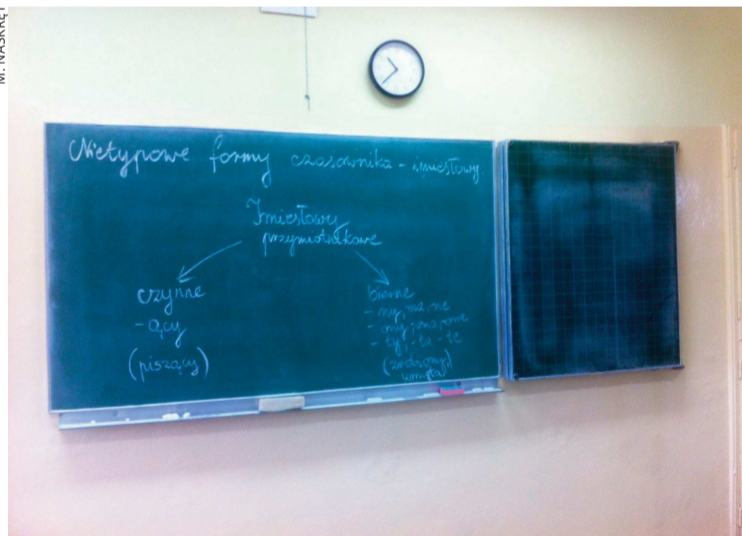 M. NASKRĘT
Nietypowe formy czasownika - imiesłowy.
Imiesłowy
przymiotnikowe
czynne
- ący
(piszący)
bierne
- ny, -na, -ne
- ony, -ona, -one
- ty, - ta - te